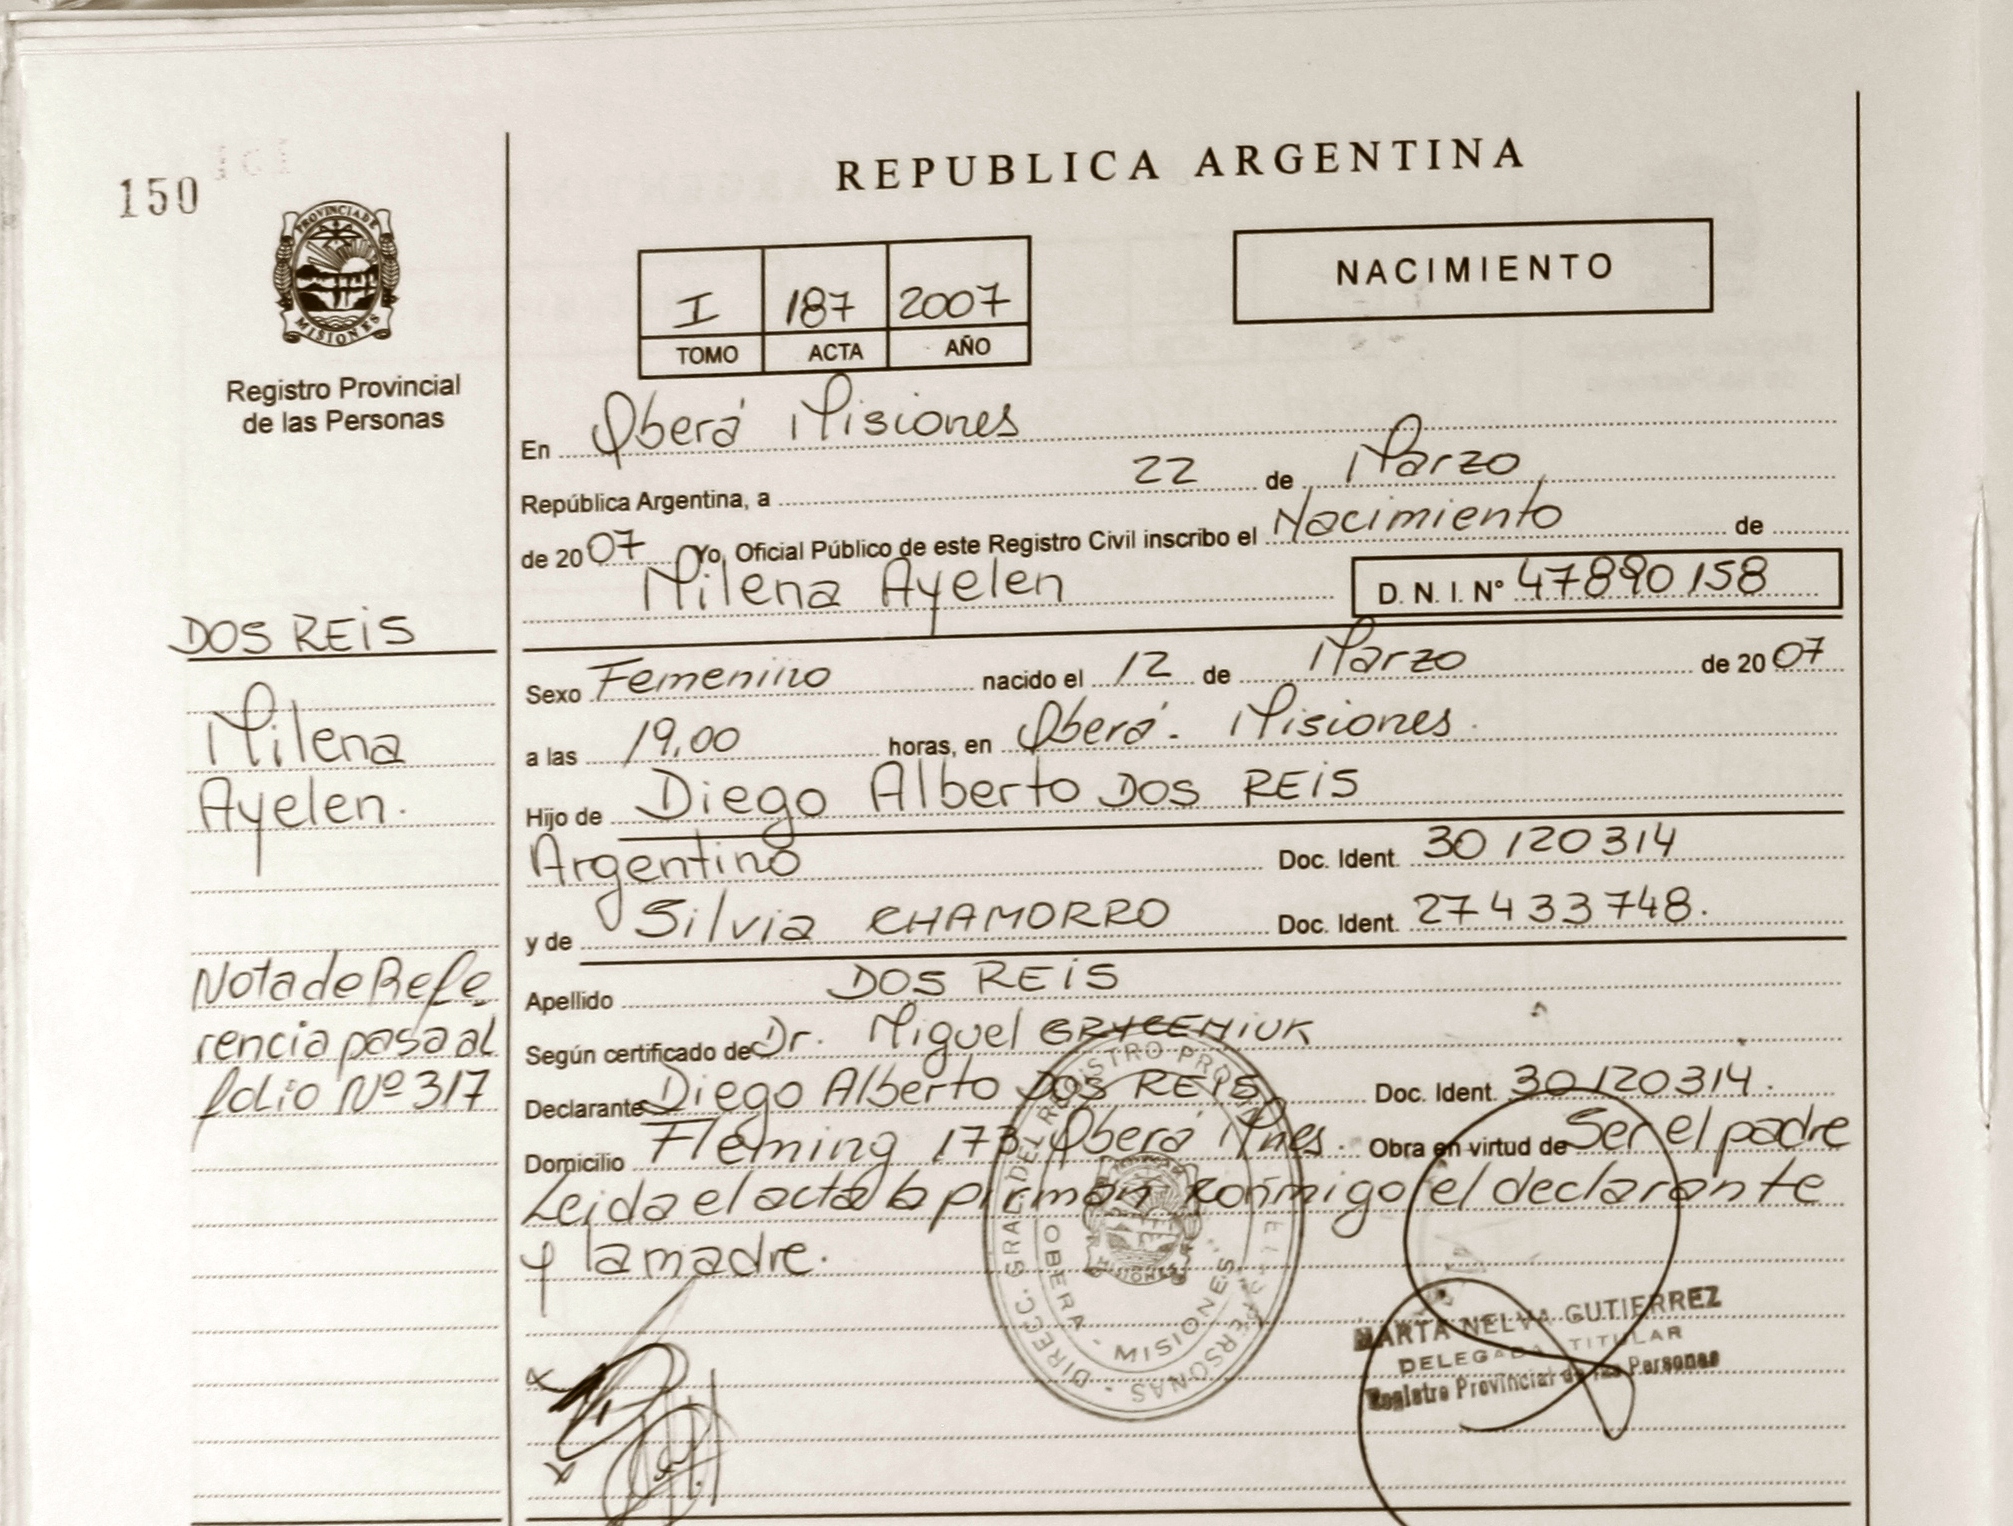 150
PROVINCIA DE
MISIONES
Registro Provincial
de las Personas
REPUBLICA ARGENTINA
NACIMIENTO
I 187 2007
TOMO ACTA AÑO
En Oberá Misiones
República Argentina, a 22 de Marzo
de 2007 Yo, Oficial Público de este Registro Civil inscribo el Nacimiento de
Milena Ayelen D. N. I. Nº 47890158
DOS REIS
Milena
Ayelen.
Sexo Femenino nacido el 12 de Marzo de 2007
a las 19,00 horas, en Oberá. Misiones.
Hijo de Diego Alberto DOS REIS
Argentino Doc. Ident. 30120314
y de Silvia CHAMORRO Doc. Ident. 27433748.
Apellido DOS REIS
Según certificado de Dr. Miguel
Declarante Diego Alberto DOS REIS Doc. Ident. 30120314.
Domicilio Fleming 173 Oberá Mnes. Obra en virtud de Ser el padre
Leida el acta la firman conmigo el declarante
y la madre.
Nota de Refe
rencia pasa al
folio Nº 317
DIRECC. GRAL. DEL REGISTRO PROVINCIAL DE LAS PERSONAS
OBERA - MISIONES
MISIONES
MARTA NELVA GUTIERREZ
DELEGADA TITULAR
Registro Provincial de las Personas